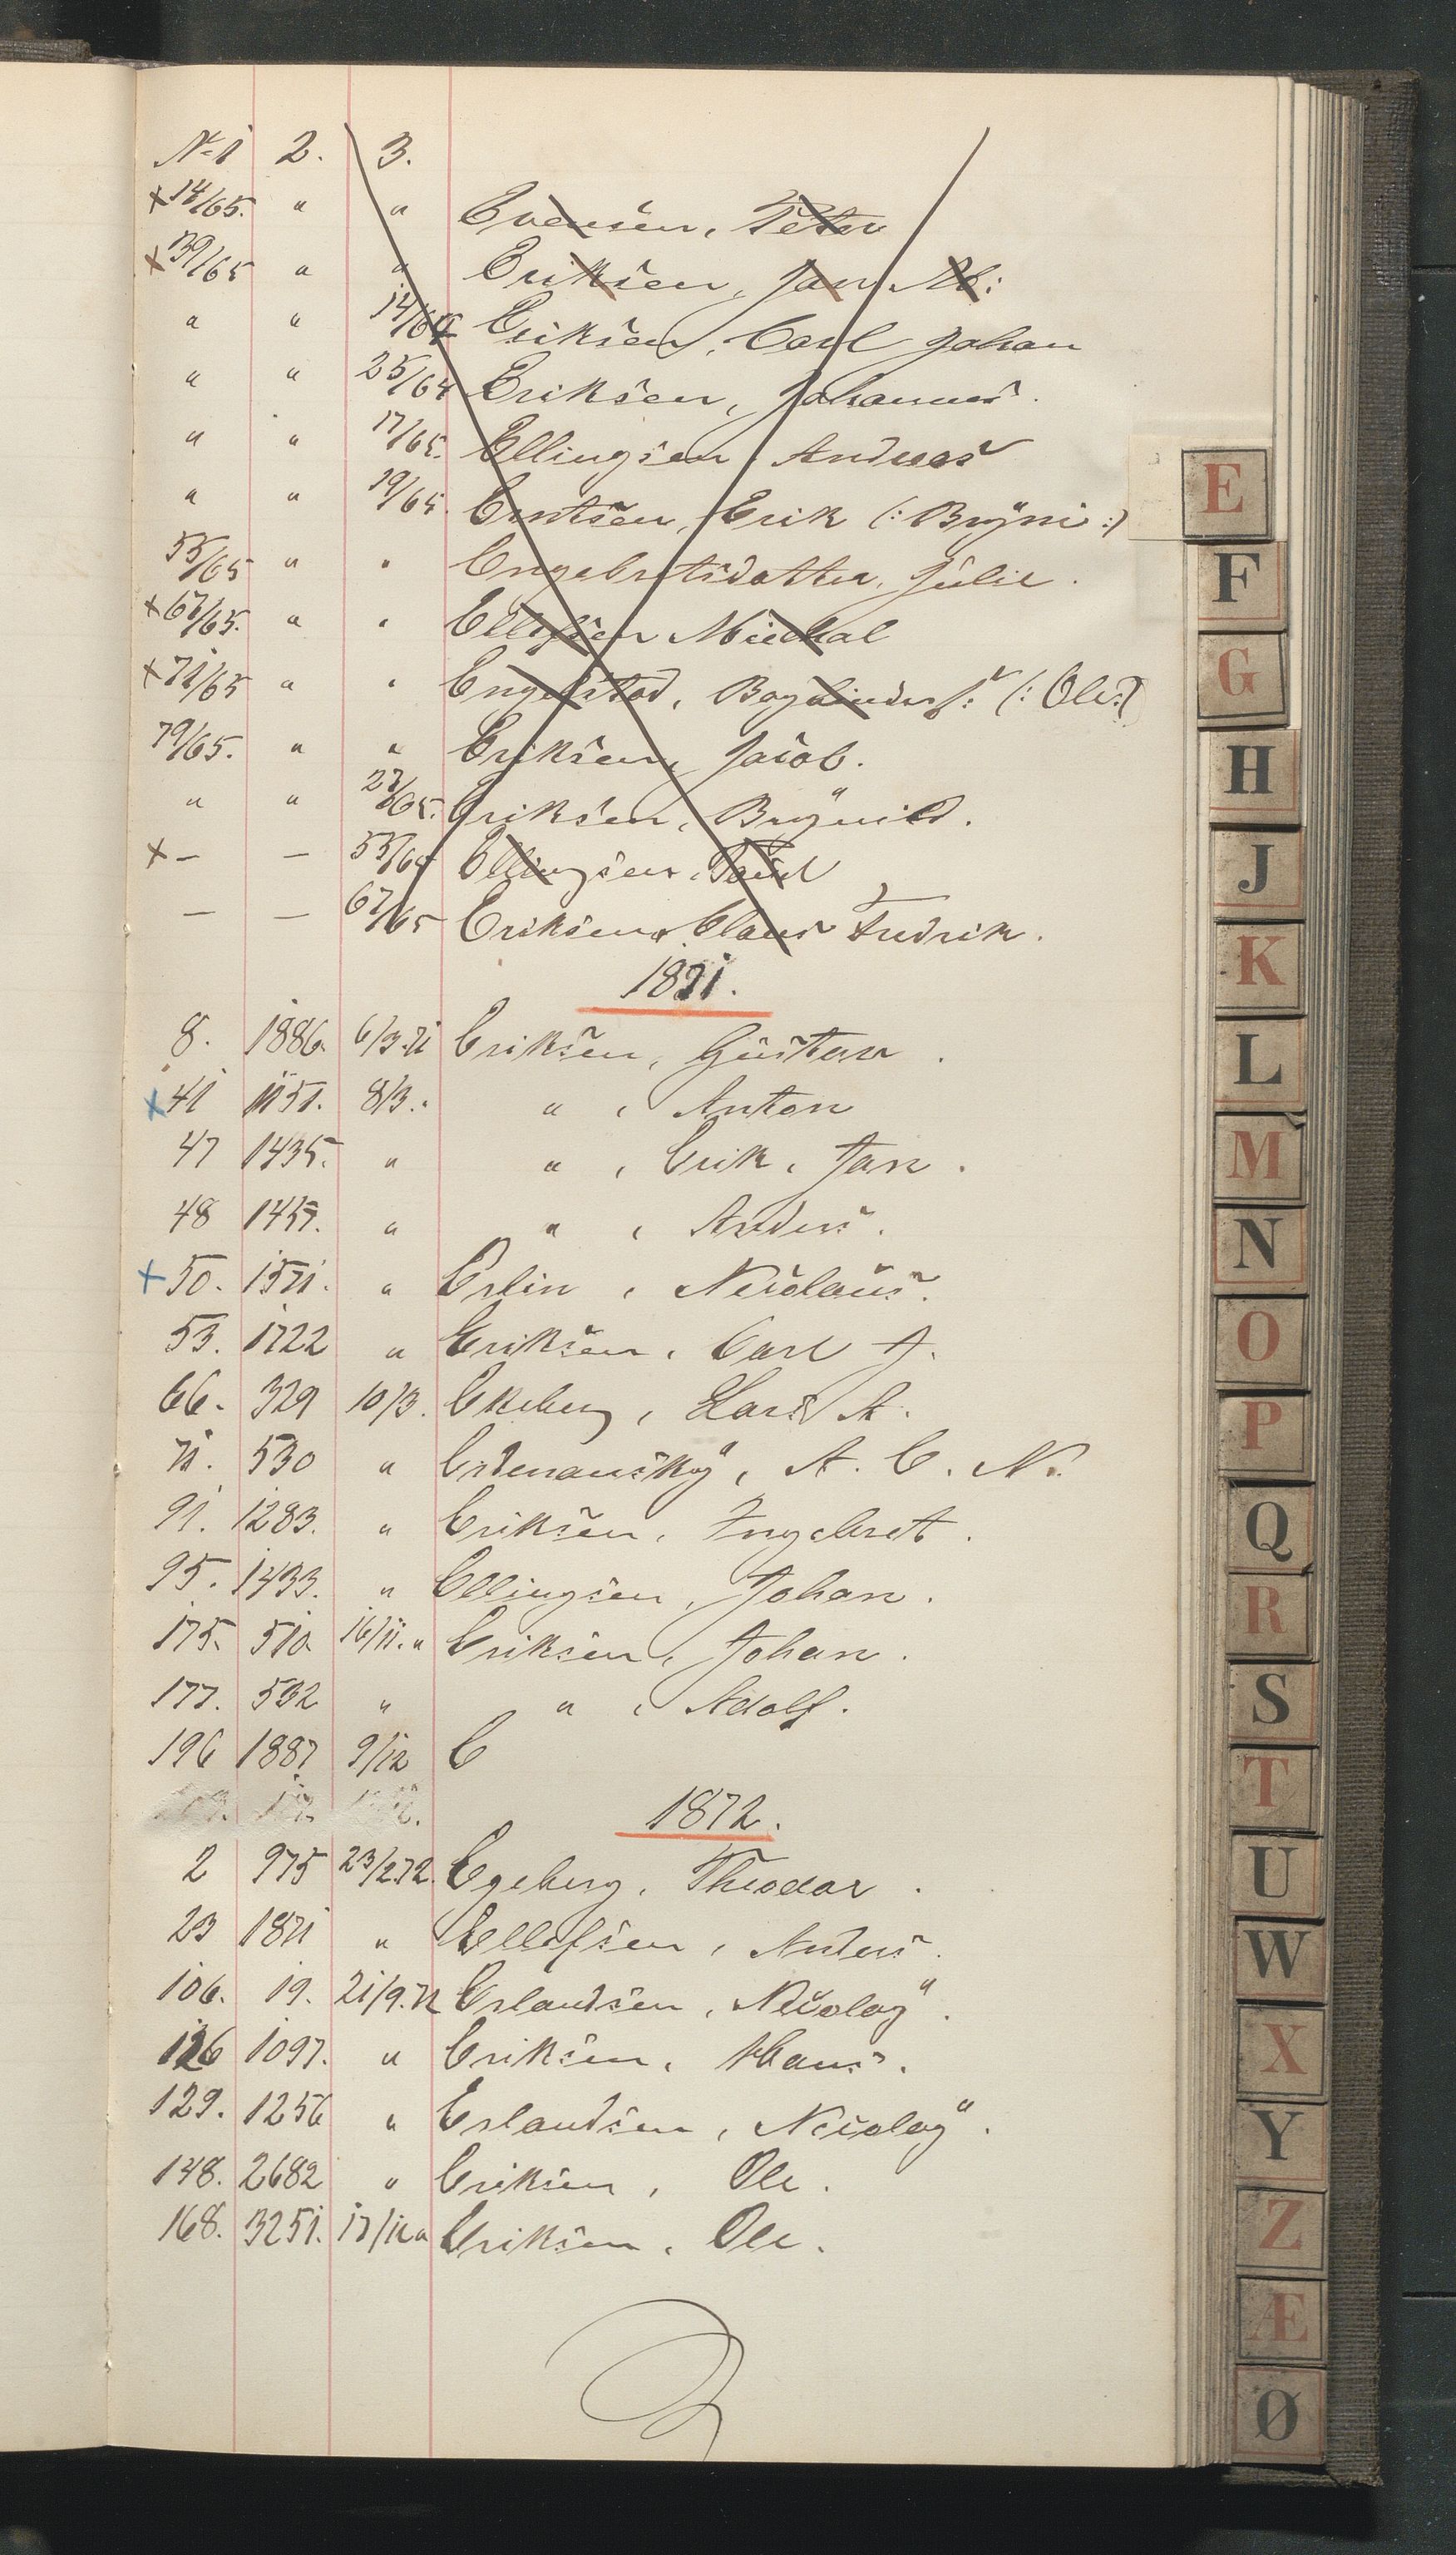 No 1 2. 3.
×14/65. " " Evensen, Peter
×39/65 " " Eriksen, Jan Ab:
" " 14/64 Eriksen, Carl Johan
" " 25/64 Eriksen, Johannes.
" " 17/65. Ellingsen, Andreas
" " 19/65 Erik (: Bryni :)
55/65 " " Engebretsdatter, Julie.
×67/65. " " Ellefsen Michal
×71/65 " " Engelstad, (: Ole:)
79/65. " " Eriksen, Jacob.
" " 27/65. Eriksen, Brynild.
× — — 55/65 Ellingsen, Paul
— — 67/65 Eriksen, Claus Fredrik.
1871.
8. 1886. 6/3.71 Eriksen, Gustav.
×41 1151. 8/3." " , Anton
47 1435. " " , Erik, Jan.
48 1457. " " , Anders.
×50. 1571. " Erlin, Nicolaus.
53. 1722 " Eriksen, Carl J.
66. 329 10/3. Ekeberg, Lars A.
71. 530 " Erdmansky, A. C. N.
91. 1283. " Eriksen, Ingebret.
95. 1433. " Ellingsen, Johan.
175. 510. 16/11." Eriksen, Johan.
177. 532 " " , Adolf.
196 1887. 9/12 E
1872.
2 975 23/2.72. Egeberg, Theodor.
23 1871 " Ellefsen, Anders.
106. 19. 21/9.72 Erlandsen, Nicolay.
126 1097. " Eriksen, Hans.
129. 1256 " Erlandsen, Nicolay.
148. 2682 " Eriksen, Ole.
168. 3251. 17/12" Eriksen, Ole.
E
F
G
H
J
K
L
M
N
O
P
Q
R
S
T
U
W
X
Y
Z
Æ
Ø